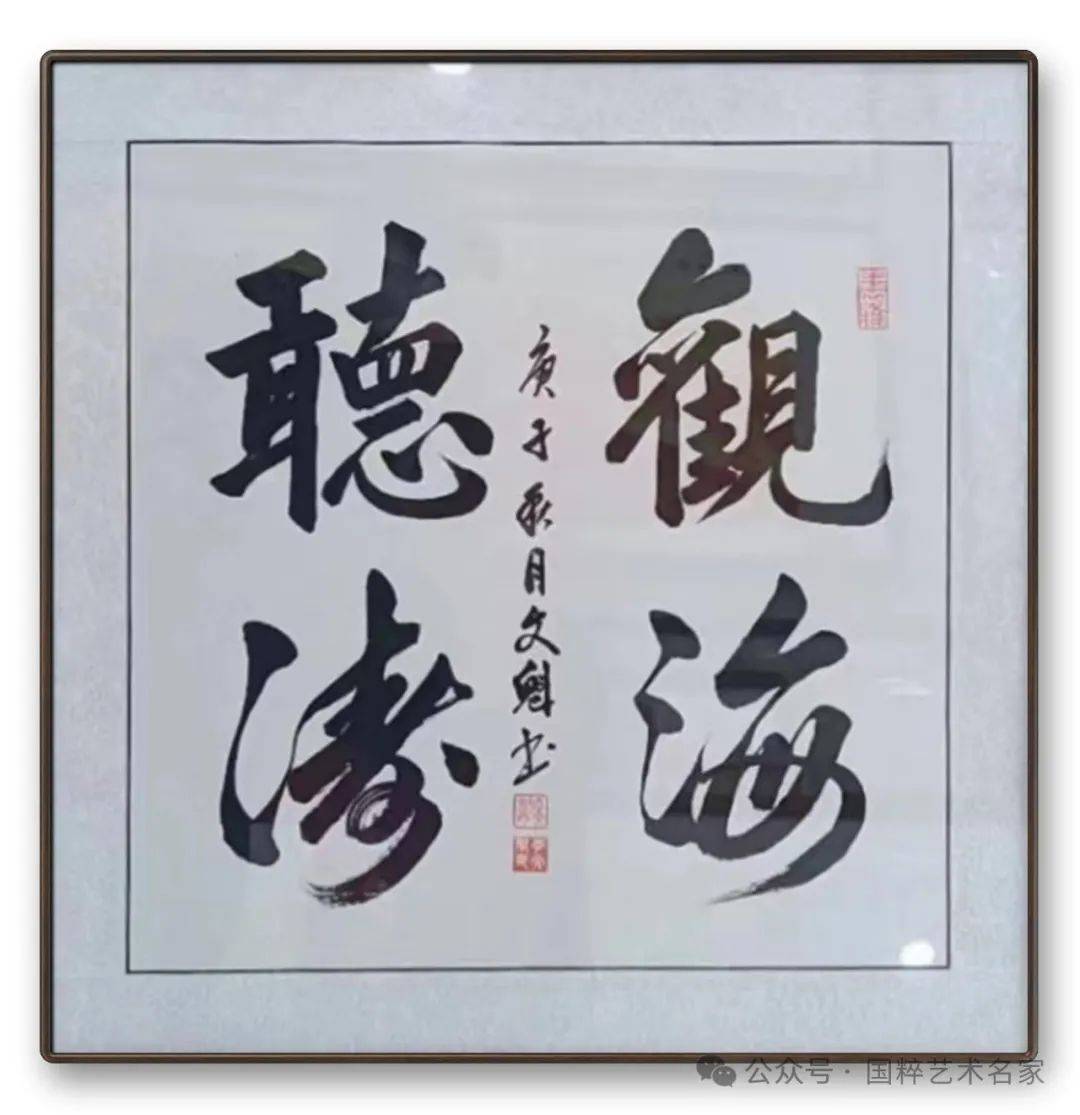 觀海
聽濤
庚子秋月文魁书
公众号·国粹艺术名家